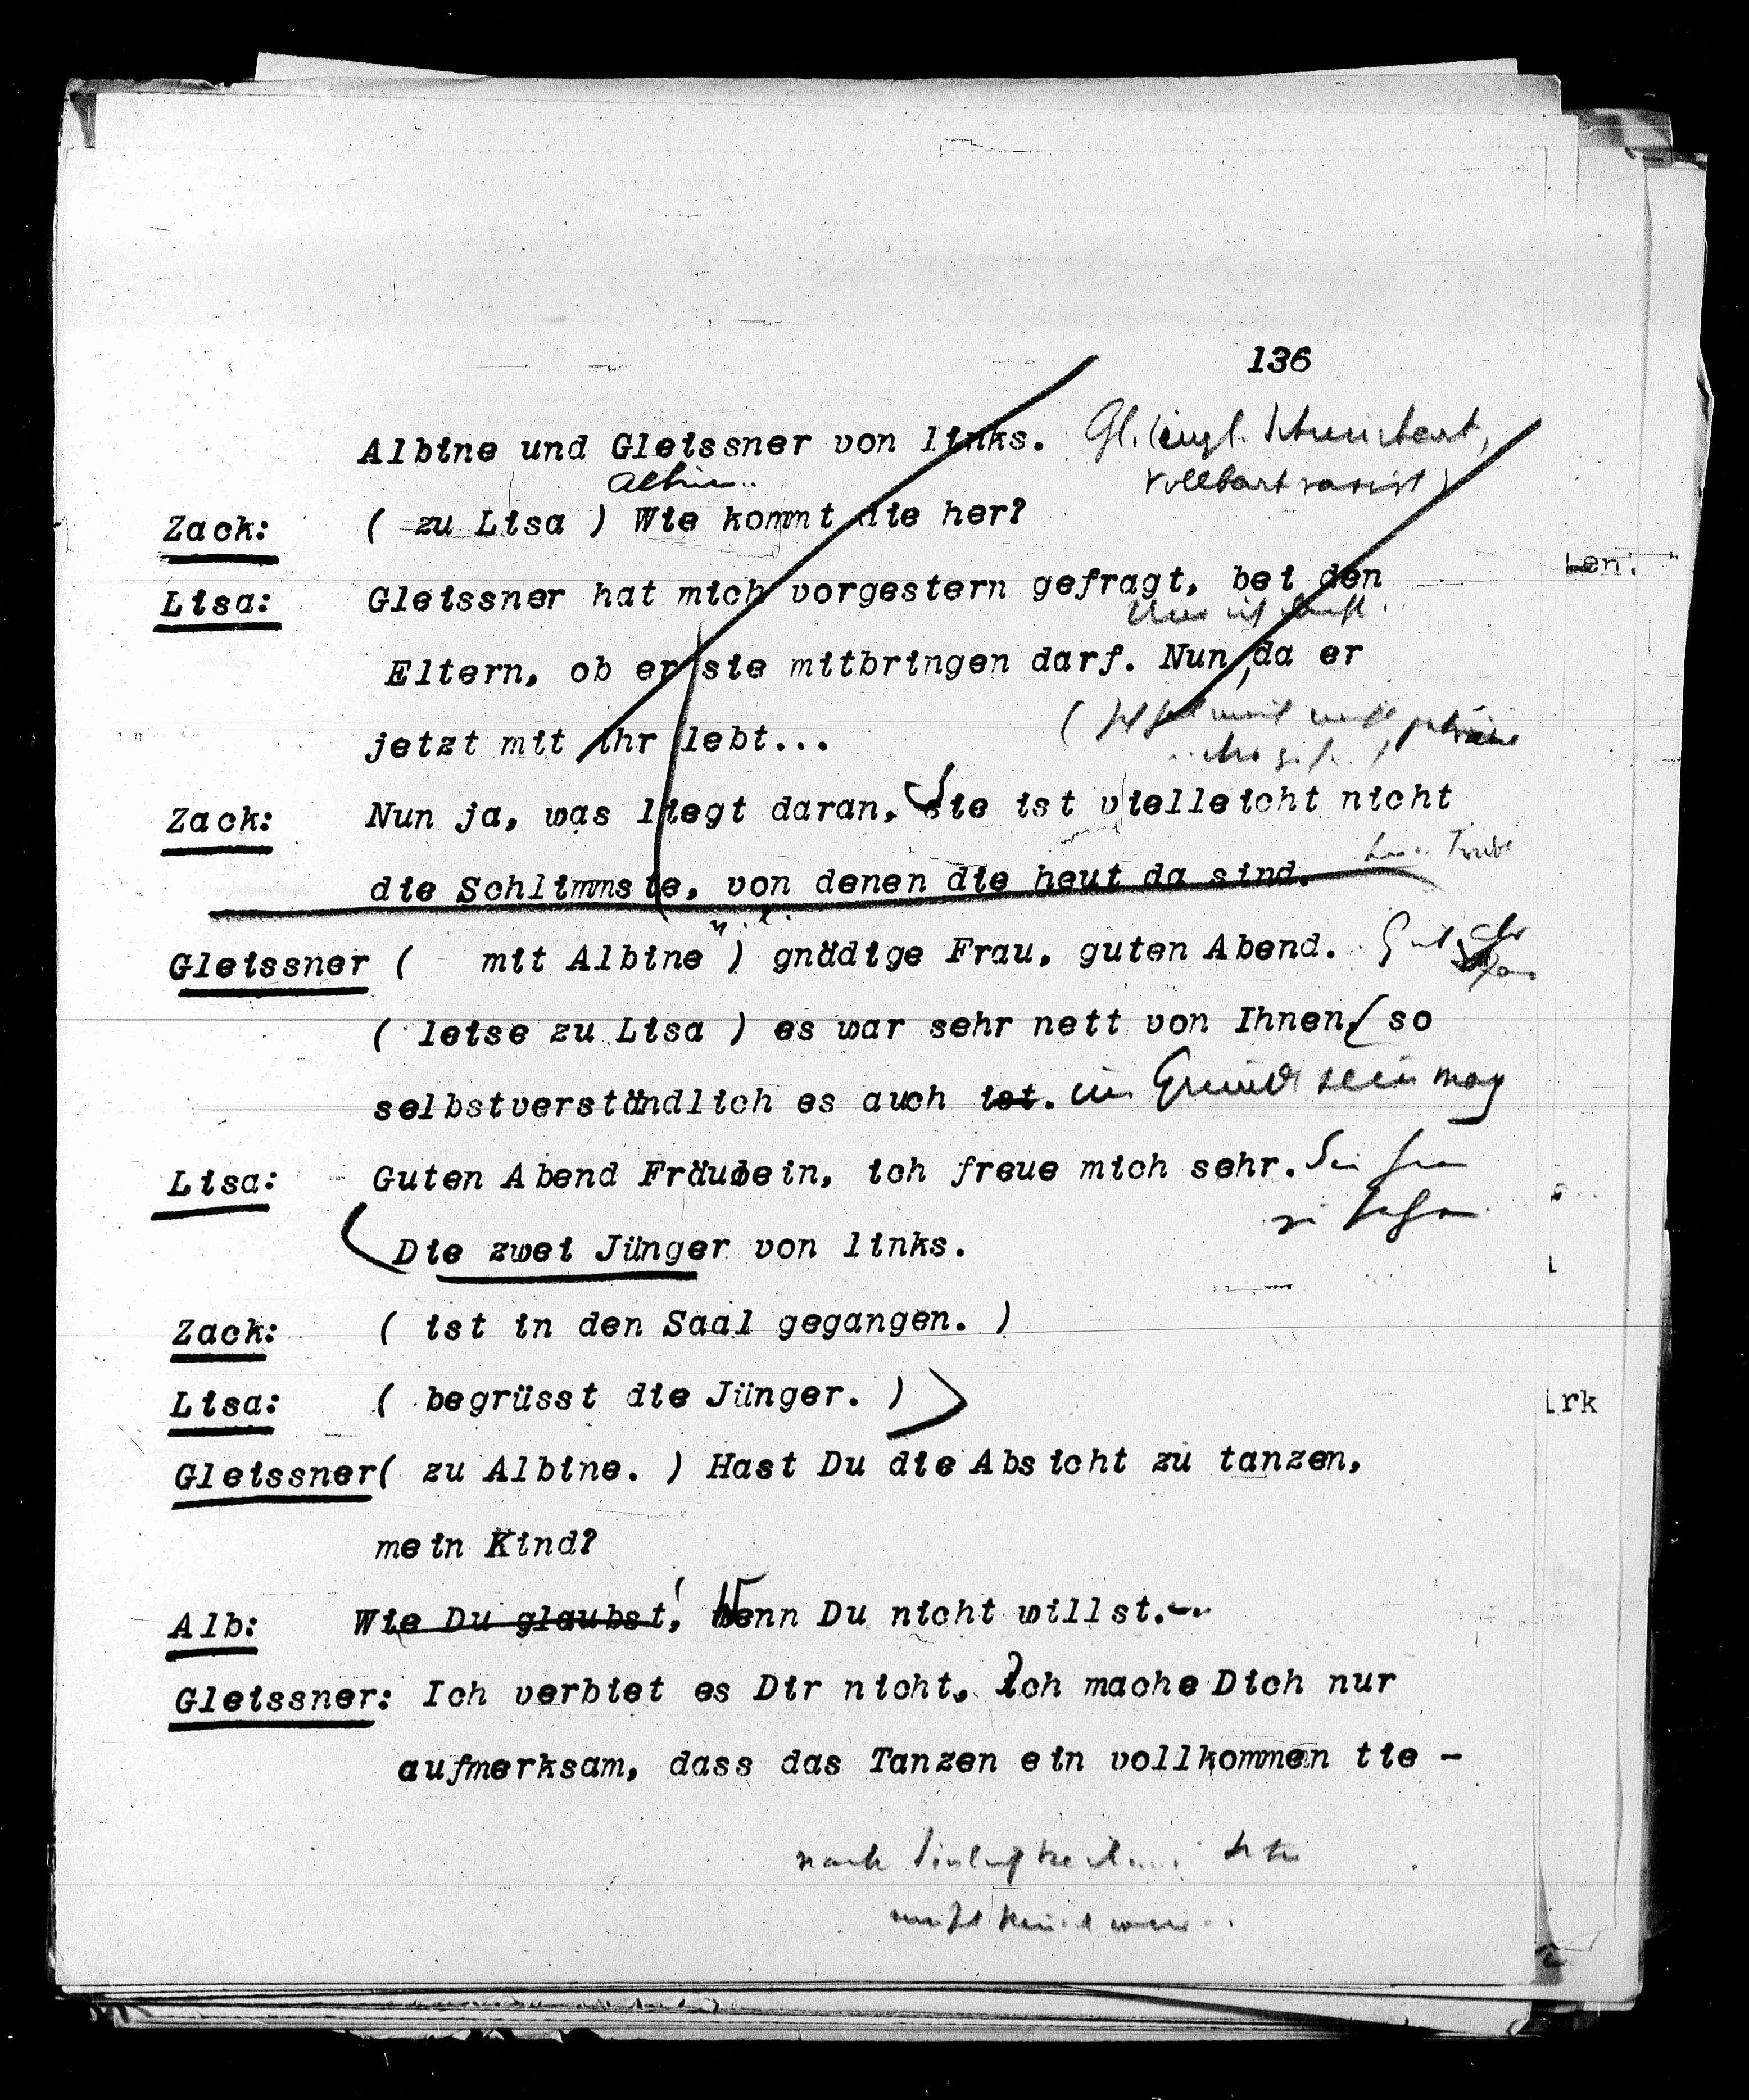 136
Albine und Gleissner von links. Gl. (engl.
Vollbart rasirt)
Albin
Zack: ( zu Lisa ) Wie kommt die her?
Lisa: Gleissner hat mich vorgestern gefragt, bei den
Eltern, ob er sie mitbringen darf. Nun, da er
jetzt mit ihr lebt...
Zack: Nun ja, was liegt daran. Sie ist vielleicht nicht
die Schlimmste, von denen die heut da sind.
Gleissner ( mit Albine ) gnädige Frau, guten Abend.
( leise zu Lisa ) es war sehr nett von Ihnen, so
selbstverständlich es auch ist. im Grunde sein mag
Lisa: Guten Abend Fräulein, ich freue mich sehr. Sie
zu sehen.
Die zwei Jünger von links.
Zack: ( ist in den Saal gegangen. )
Lisa: ( begrüsst die Jünger. )
Gleissner ( zu Albine. ) Hast Du die Absicht zu tanzen,
mein Kind?
Alb: Wie Du glaubst! Wenn Du nicht willst.
Gleissner: Ich verbiet es Dir nicht. Ich mache Dich nur
aufmerksam, dass das Tanzen ein vollkommen tie -
nach
en:
rk